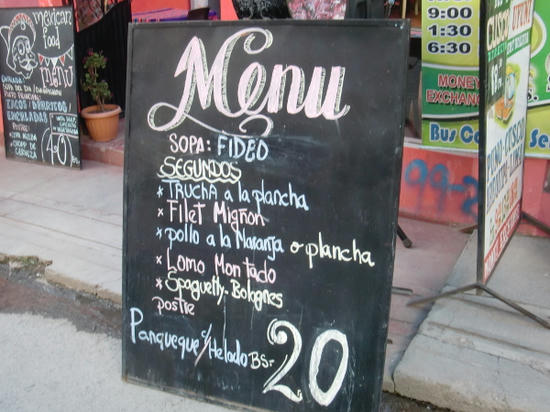 Mexican
Food
menú
TACOS / BURRITOS /
ENCHILADAS
40
Menu
SOPA: FIDEO
SEGUNDOS
* TRUCHA a la plancha
* Filet Mignon
* pollo a la Naranja o plancha
* Lomo Montado
* Spaguetty-Bolognes
postre
Panqueque c/Helado Bs.- 20
9:00
1:30
6:30
MONEY
EXCHANGE
Bus Ca
Se
PUNO
CUSCO